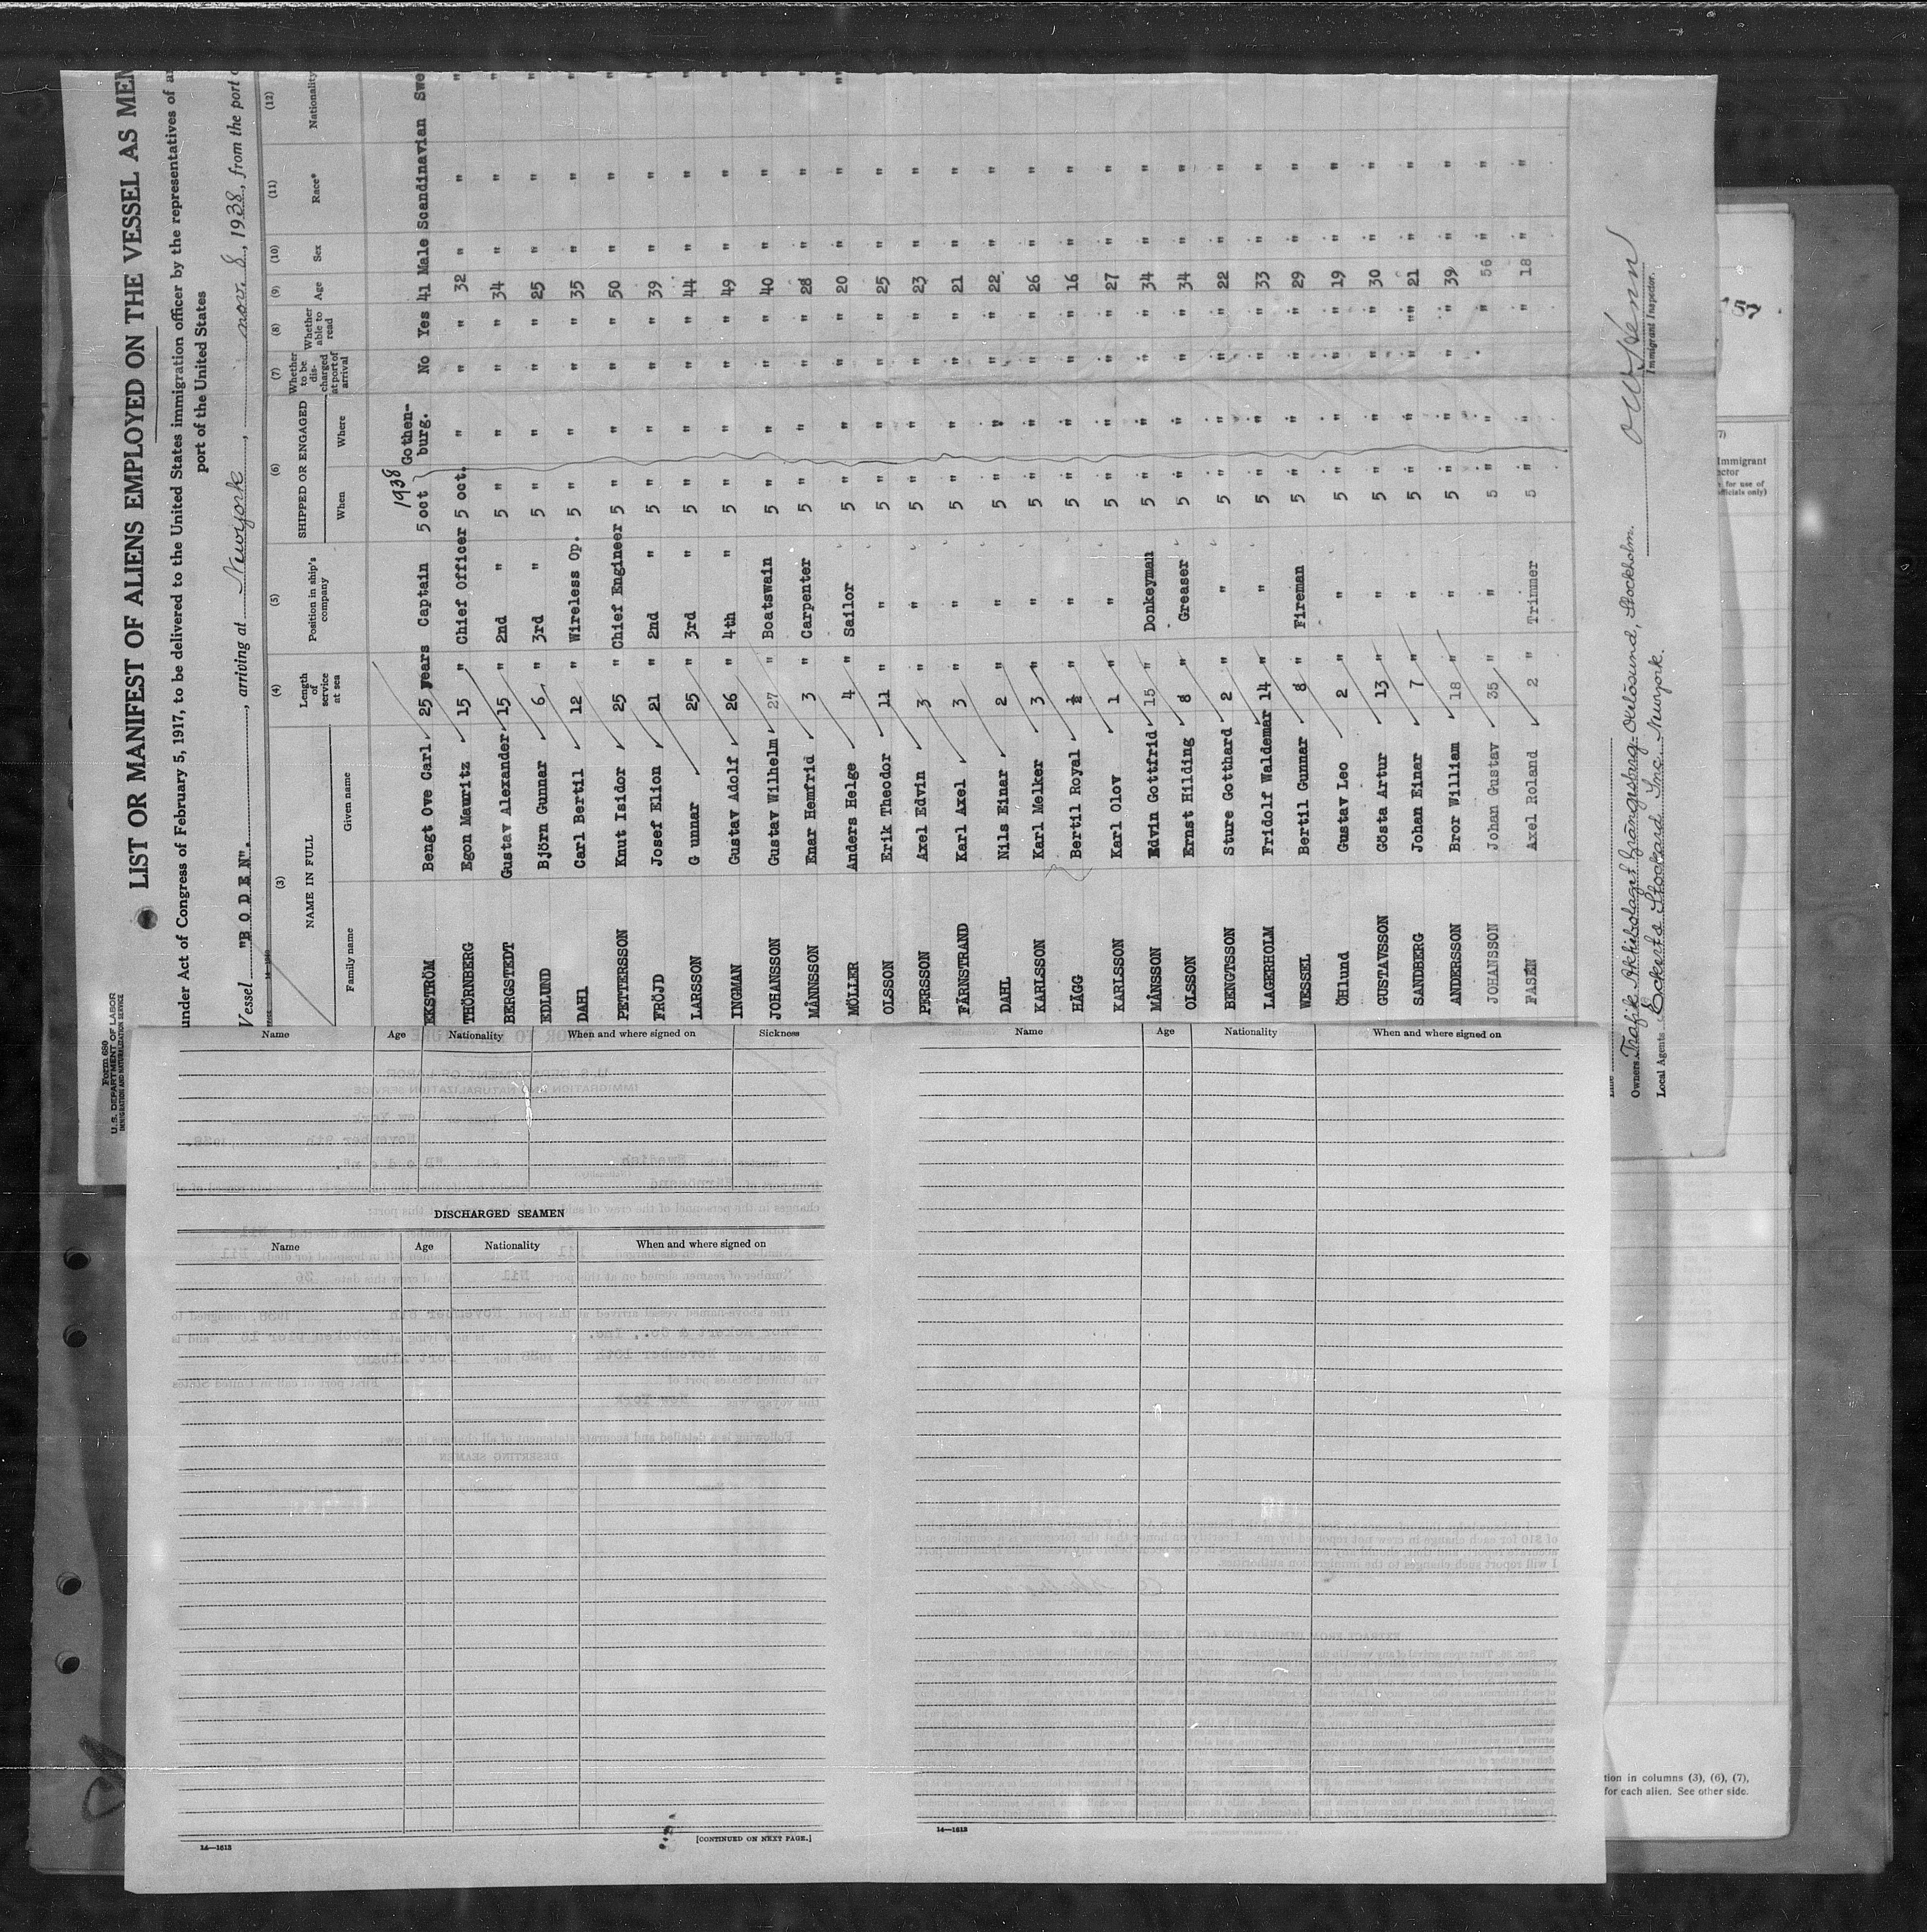 Form 680
U. S. DEPARTMENT OF LABOR
IMMIGRATION AND NATURALIZATION SERVICE
LIST OR MANIFEST OF ALIENS EMPLOYED ON THE VESSEL AS MEM
under Act of Congress of February 5, 1917, to be delivered to the United States immigration officer by the representatives of an
port of the United States
Vessel "B O D E N". , arriving at Newyork , nov. 8 , 1938, from the port o
(3) (4) (5) (6) (7) (8) (9) (10) (11) (12)
NAME IN FULL Length of service at sea Position in ship's company SHIPPED OR ENGAGED Whether to be discharged at port of arrival Whether able to read Age Sex Race* Nationality
Family name Given name When Where
1938
EKSTRÖM Bengt Ove Carl 25 years Captain 5 oct Gothen-burg. No Yes 41 Male Scandinavian Swe
THÖRNBERG Egon Mauritz 15 " Chief Officer 5 oct. " " " 32 " " "
BERGSTEDT Gustav Alexander 15 " 2nd " 5 " " " " 34 " " "
EDLUND Björn Gunnar 6 " 3rd " 5 " " " " 25 " " "
DAHl Carl Bertil 12 " Wireless Op. 5 " " " " 35 " " "
PETTERSSON Knut Isidor 25 " Chief Engineer 5 " " " " 50 " " "
FRÖJD Josef Elion 21 " 2nd " 5 " " " " 39 " " "
LARSSON G unnar 25 " 3rd " 5 " " " " 44 " " "
INGMAN Gustav Adolf 26 " 4th " 5 " " " " 49 " " "
JOHANSSON Gustav Wilhelm 27 " Boatswain 5 " " " " 40 " " "
MÅNNSSON Enar Hemfrid 3 " Carpenter 5 " " " " 28 " " "
MÖLLER Anders Helge 4 " Sailor 5 " " " " 20 " " "
OLSSON Erik Theodor 11 " " 5 " " " " 25 " "
PERSSON Axel Edvin 3 " " 5 " " " " 23 " "
FÄRNSTRAND Karl Axel 3 " " 5 " " " " 21 " "
DAHL Nils Einar 2 " " 5 " " " " 22 " "
KARLSSON Karl Melker 3 " " 5 " " " " 26 " "
HÄGG Bertil Royal ½ " " 5 " " " " 16 " "
KARLSSON Karl Olov 1 " " 5 " " " " 27 " "
MÅNSSON Edvin Gottfrid 15 " Donkeyman 5 " " " " 34 " "
OLSSON Ernst Hilding 8 " Greaser 5 " " " " 34 " "
BENGTSSON Sture Gotthard 2 " " 5 " " " " 22 " "
LAGERHOLM Fridolf Waldemar 14 " " 5 " " " " 33 " "
WESSEL Bertil Gunnar 8 " Fireman 5 " " " " 29 " "
ÖHlund Gustav Leo 2 " " 5 " " " " 19 " "
GUSTAVSSON Gösta Artur 13 " " 5 " " " " 30 " "
SANDBERG Johan Einar 7 " " 5 " " " " 21 " "
ANDERSSON Bror William 18 " " 5 " " " " 39 " "
JOHANSSON Johan Gustav 35 " " 5 " " " " 56 " "
FASÉN Axel Roland 2 " Trimmer 5 " " " 18 " "
Immigrant Inspector.
Owners Trafik Aktiebolaget Grängesberg Oxlösund, Stockholm.
Local Agents Eckerts Stockard Inc. Newyork.
Immigrant
for use of
officials only)
Name Age Nationality When and where signed on Sickness
DISCHARGED SEAMEN
Name Age Nationality When and where signed on
14—1613
[CONTINUED ON NEXT PAGE.]
Name Age Nationality When and where signed on
14—1613
tion in columns (3), (6), (7),
for each alien. See other side.